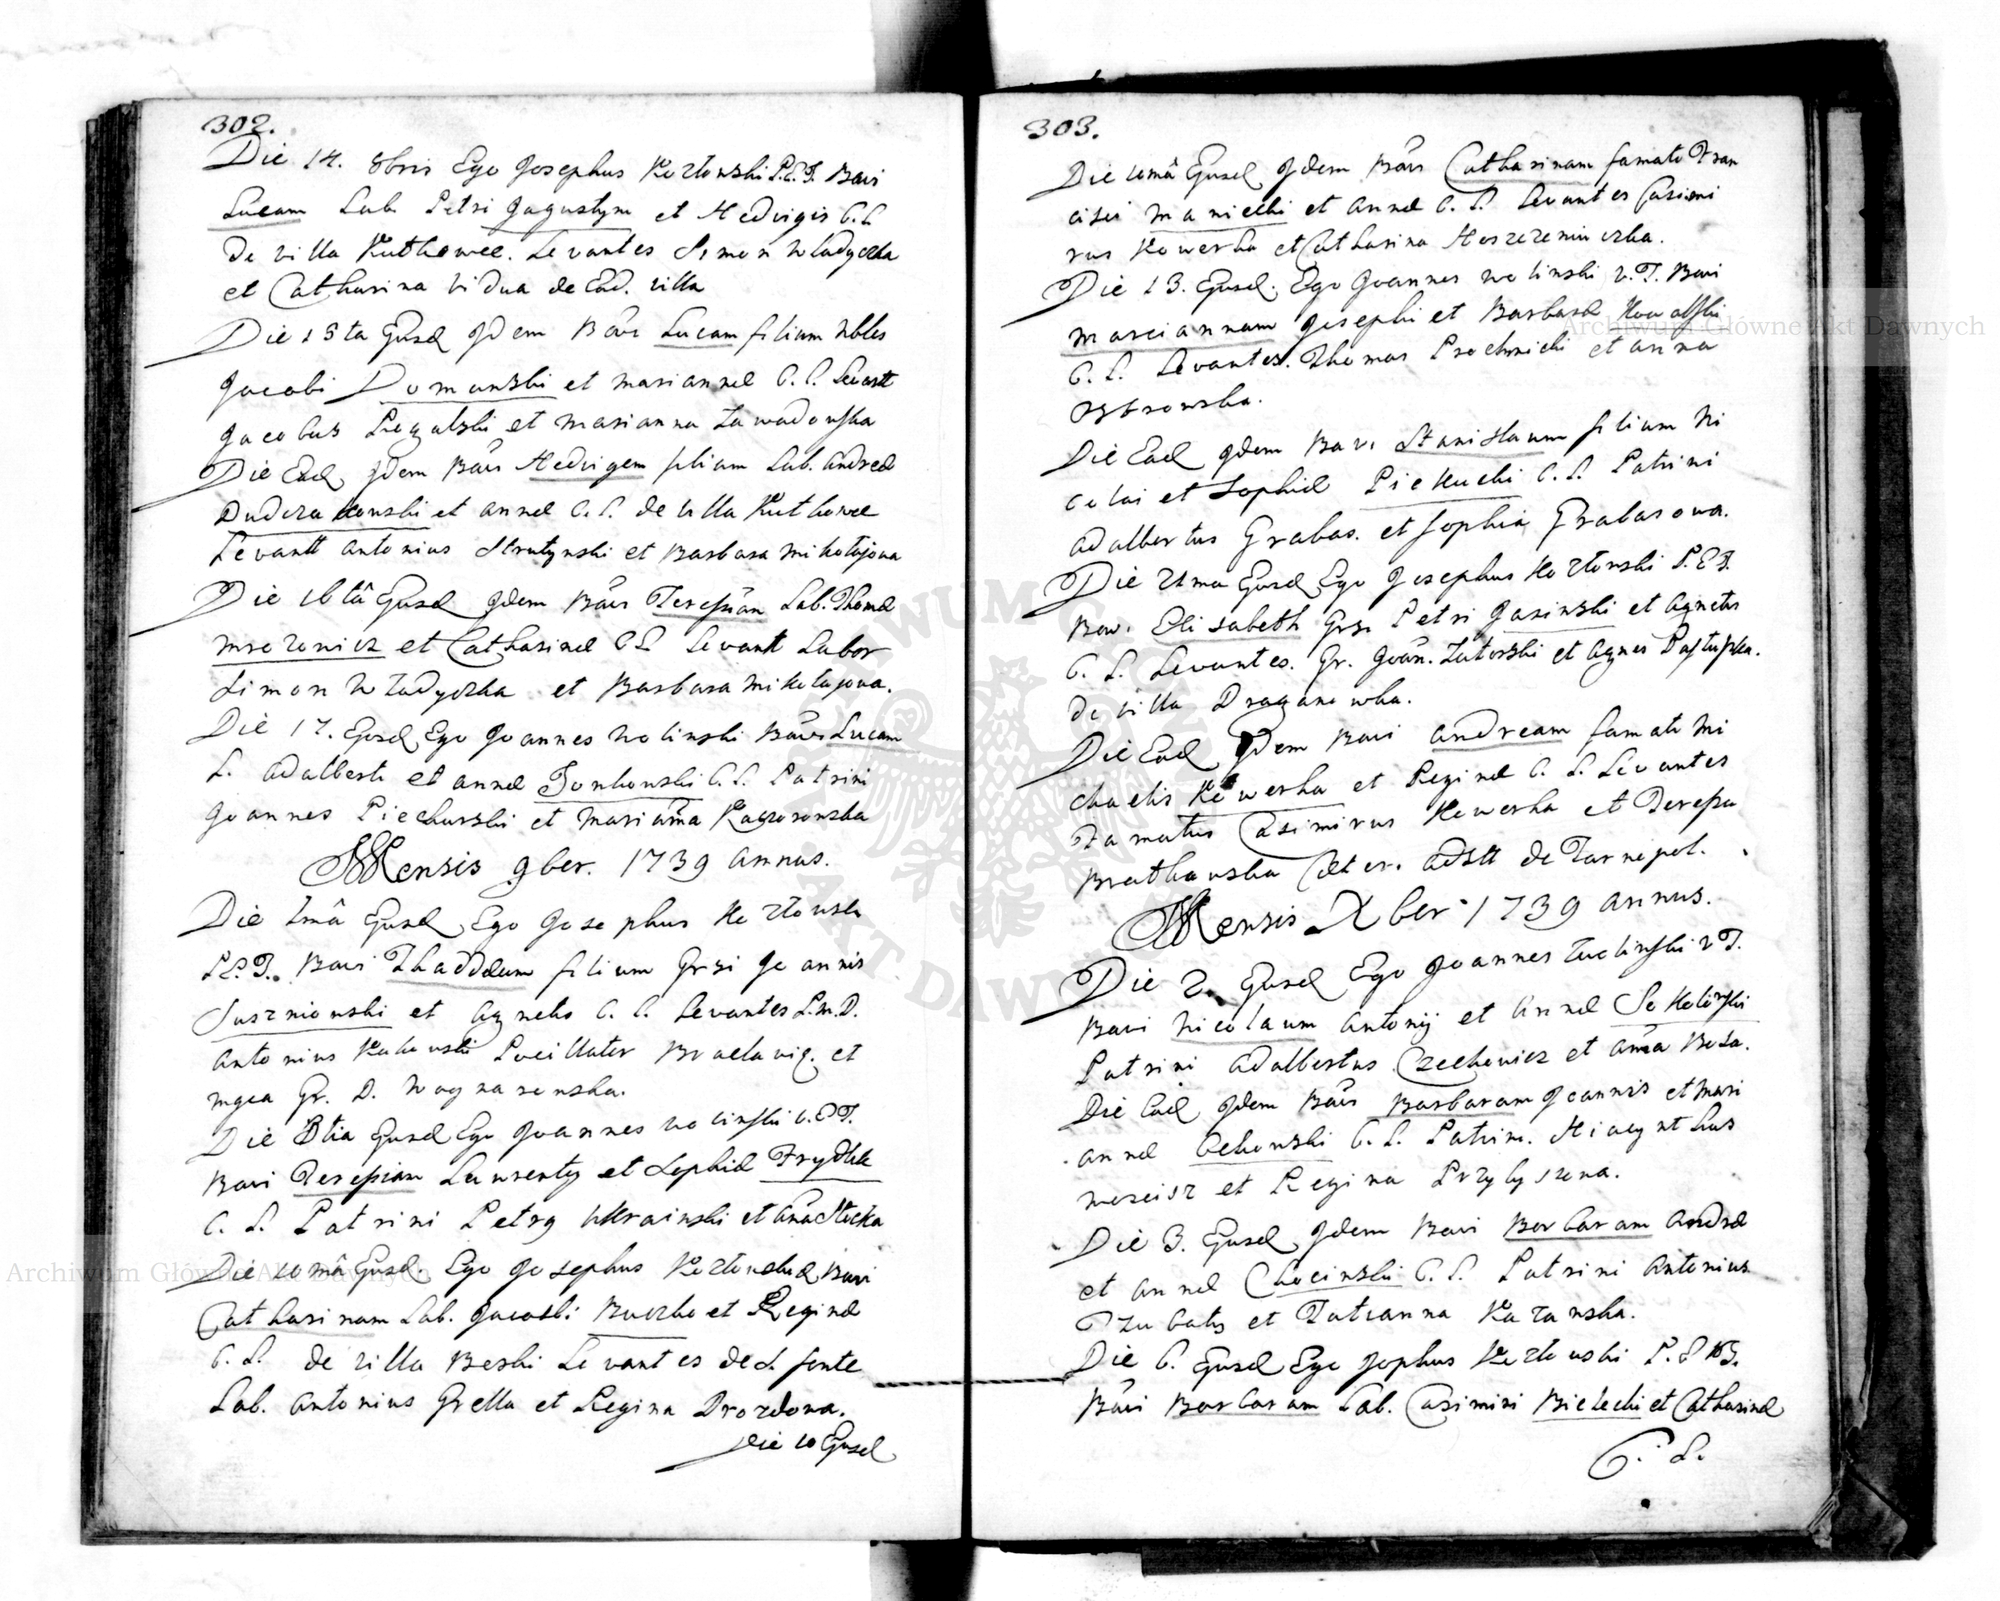 302.
Die 14. 8bris Ego Josephus Kozłowski P.E.T. Bavi
Lucam Lab. Petri Jagustyn et Hedvigis C.L.
de villa Kutkowce. Levantes Simon Władyczka
et Catharina vidua de Ead. villa
Die 15ta Ejusd Idem Bavi Lucam filium Nbles
Jacobi Domanski et Mariannæ C.L. Levantt
Jacobus Rogalski et Marianna Zawadowska
Die Ead Idem Bavi Hedvigem filiam Lab. Andreæ
Dudcza et Annæ C.L. de villa Kutkowce
Levantt Antonius Strutynski et Barbara Mikołajowa
Die 16tâ Ejusd Idem Bavi Teressiam Lab. Thomæ
Mrozowicz et Catharinæ C L Levantt Labor
Simon Władyczka et Barbara Mikołajowa.
Die 17. Ejusd Ego Joannes Wolinski Bavi Lucam
L. Adalberti et Annæ Jonkowski C.L. Patrini
Joannes Piecharski et Marianna Kaczorowska
Mensis 9ber. 1739 annus.
Die 1mâ Ejusd Ego Josephus Kozłowski
P.E.T. Bavi Thaddæum filium Grsi Joannis
Juszniowski et Agnetis C.L. Levantes P.M.D.
Antonius Pocillator Braclavig. et
Mgca Gr. D. Woynarowska.
Die 8tia Ejusd Ego Joannes Wolinski V.E.T.
Bavi Teressiam Laurenty et Sophiæ Frydlik
C. L. Patrini Petry Ukrainski et
Die 10mâ Ejusd. Ego Josephus Kozłowski Bavi
Catharinam Lab. Jacobi Buczko et Reginæ
C.L. de villa Beski Levantes de S. fonte
Lab. Antonius Grella et Regina Drozdowa.
Die 10 Ejusd
303.
Die 10mâ Ejusd Idem Bavi Catharinam famato Fran
cisci Maniecki et Annæ C.L. Levantes Casimi
rus Kowerka et Catharina
Die 13. Ejusd. Ego Joannes Wolinski V.T. Bavi
Mariannam Josephi et Barbaræ Kowalski
C.L. Levantes. Thomas Prochnicki et Anna
Ostrowska.
Die Ead Idem Bavi Stanislaum filium Ni
colai et Sophiæ C.L. Patrini
Adalbertus Grabas. et Sophia Grabasowa.
Die 21ma Ejusd Ego Josephus Kozłowski P.E.T.
Bavi. Elisabeth Grsi Petri Jasinski et Agnetis
C.L. Levantes. Gr. Joan. Zatorski et Agnes
de villa Draganowka.
Die Ead Idem Bavi Andream famati Mi
chaelis Kowerka et Reginæ C. L. Levantes
Famatus Casimirus Kowerka et Teressa
Bratkowska Cæter. adstt de Tarnopol.
Mensis Xber 1739 annus.
Die 2. Ejusd Ego Joannes Wolinski V T.
Bavi Nicolaum Antonij et Annæ Sokolowski
Patrini Adalbertus Czechowicz et Anna
Die Ead Idem Bavi Barbaram Joannis et Mari
annæ Cekowski C.L. Patrin. Hiacynthus
et Regina
Die 3. Ejusd Idem Bavi Barbaram Andræ
et Annæ Chocinski C.L. Patrini Antonius
Dzubaty et Tatianna Kazanska.
Die 6. Ejusd Ego Jophus Kozłowski P. E T.
Bavi Barbaram Lab. Casimiri Bielecki et Catharinæ
C. L.
Archiwum Główne Akt Dawnych
Archiwum Główne Akt Dawnych
ARCHIWUM GŁÓWNE AKT DAWNYCH